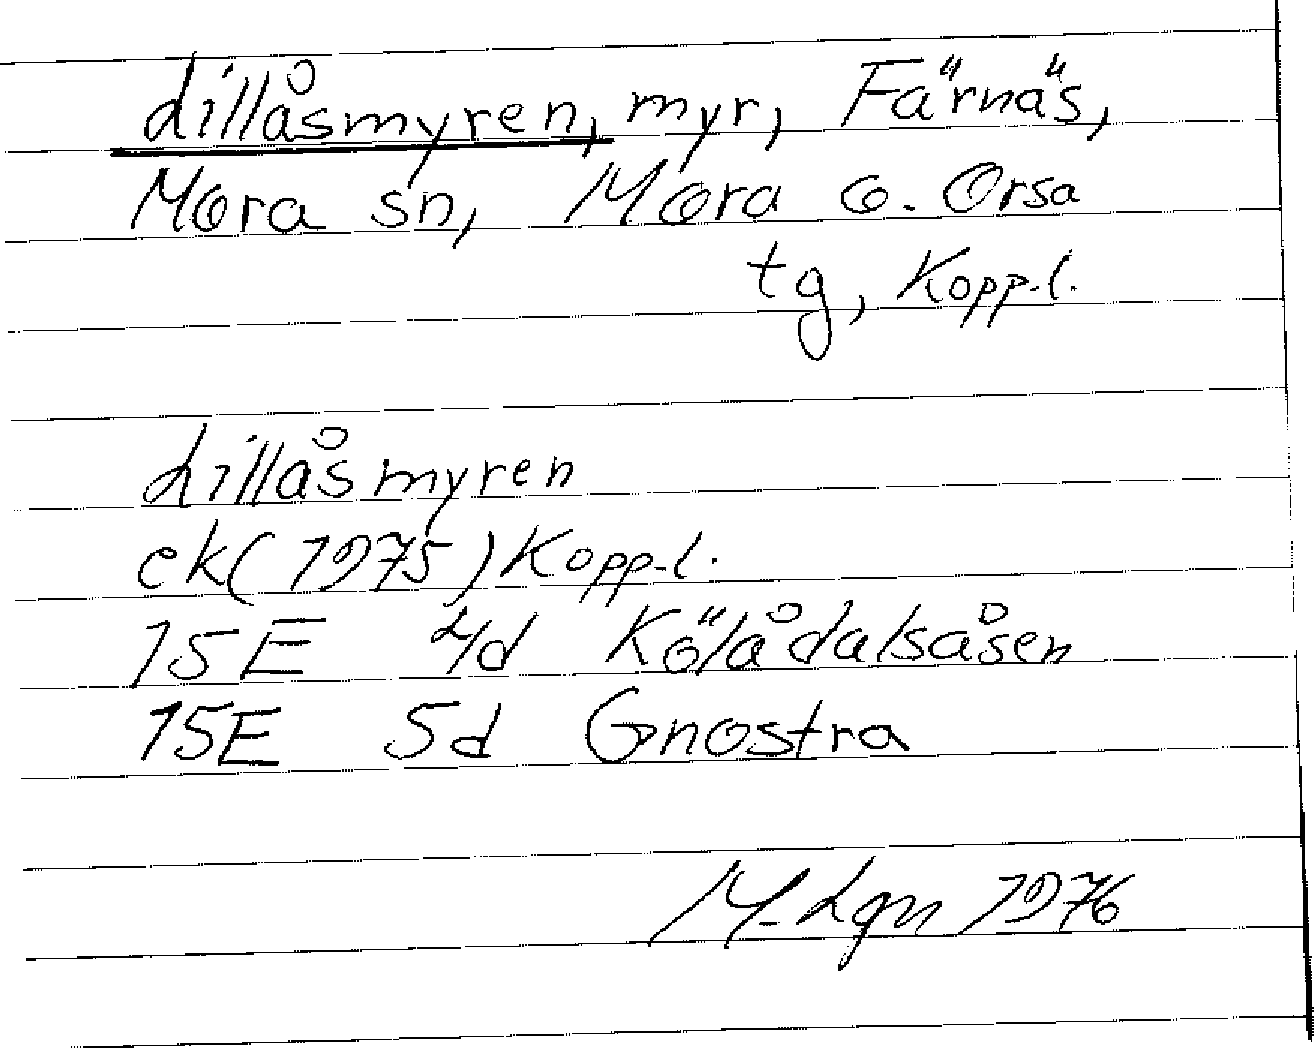 Lillåsmyren, myr, Färnäs,
Mora sn, Mora o. Orsa
tg, Kopp.l.
Lillåsmyren
ek (1975) Kopp.l.
15E 4d Kölådalsåsen
15E 5d Gnostra
M. Lgn 1976